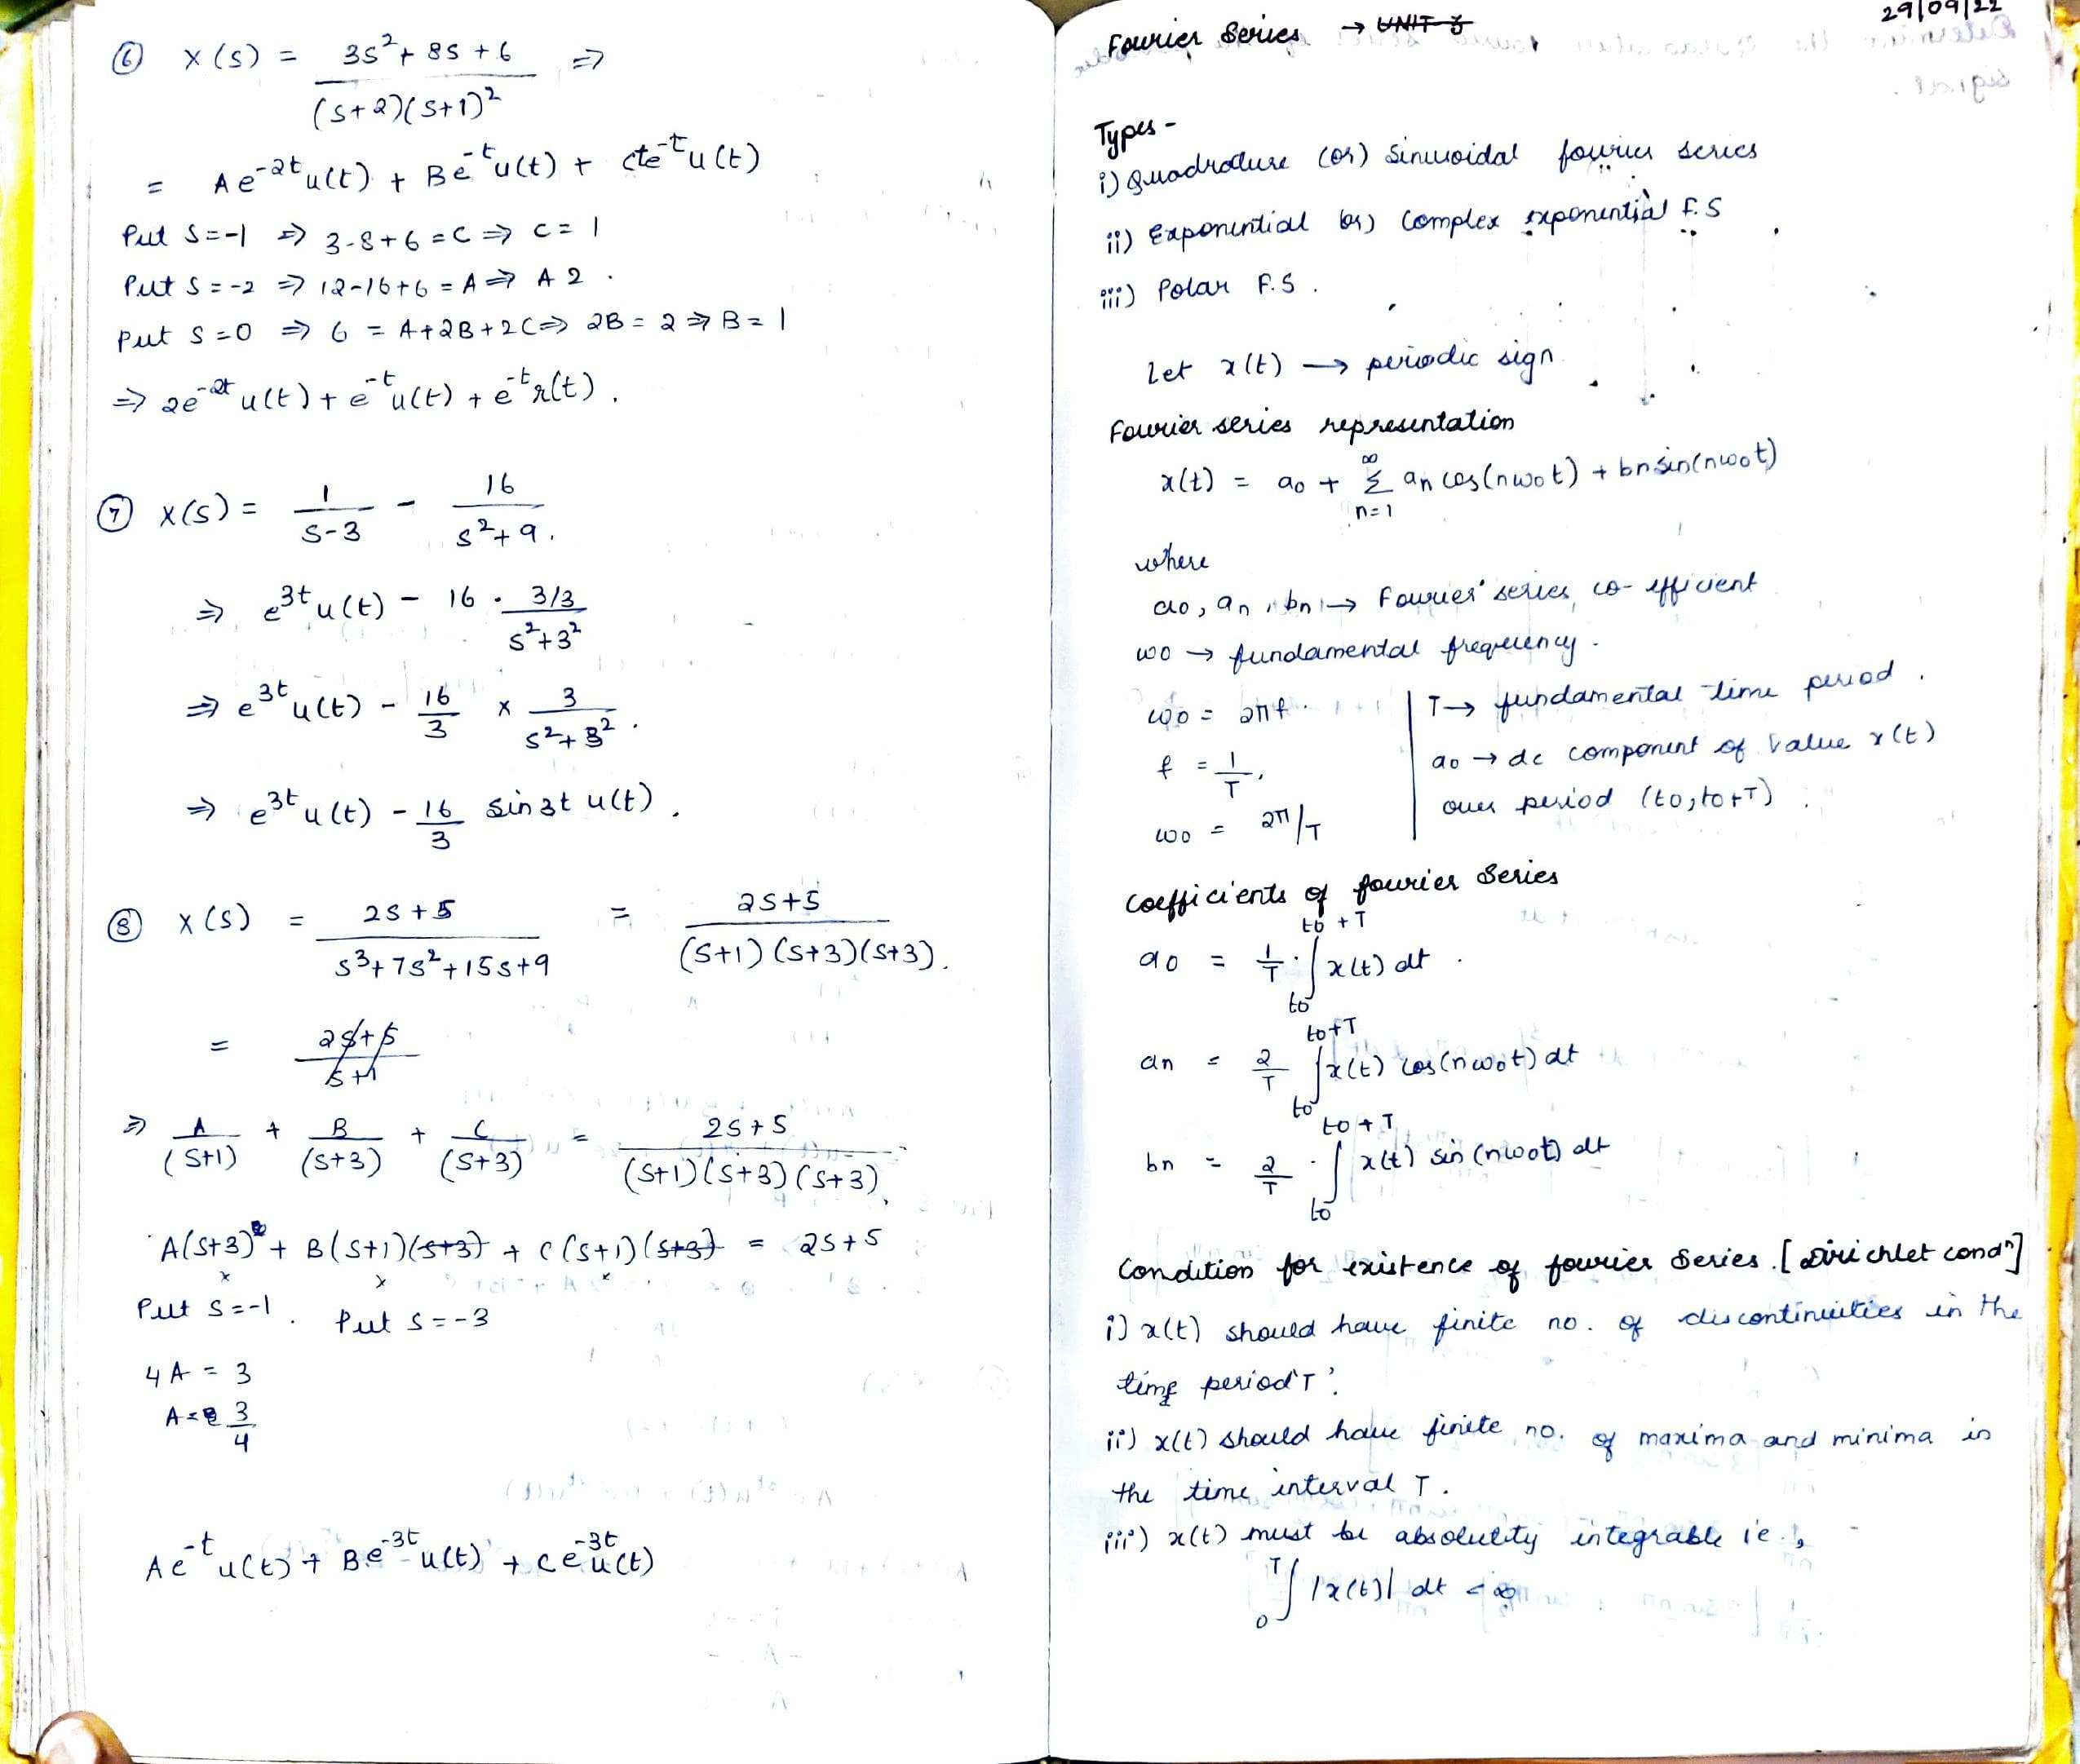 ⑥ X(s) = 3s²+8s+6 / (s+2)(s+1)² ⇒
= Ae^-2t u(t) + Be^-t u(t) + cte^-t u(t)
Put s=-1 ⇒ 3-8+6=C ⇒ C=1
Put s=-2 ⇒ 12-16+6=A ⇒ A 2.
Put s=0 ⇒ 6 = A+2B+2C ⇒ 2B=2 ⇒ B=1
⇒ 2e^-2t u(t) + e^-t u(t) + e^-t r(t).
⑦ X(s) = 1/s-3 - 16/s²+9.
⇒ e^3t u(t) - 16 . 3/3 / s²+3²
⇒ e^3t u(t) - 16/3 × 3/s²+3².
⇒ e^3t u(t) - 16/3 sin3t u(t).
⑧ X(s) = 2s+5 / s³+7s²+15s+9 = 2s+5 / (s+1)(s+3)(s+3).
= 2s+5 / s+1
⇒ A/(s+1) + B/(s+3) + C/(s+3) = 2s+5 / (s+1)(s+3)(s+3)
A(s+3) + B(s+1)(s+3) + C(s+1)(s+3) = 2s+5
Put s=-1. Put s=-3
4A = 3
A= 3/4
Ae^-t u(t) + Be^-3t u(t) + ce^-3t u(t)
29/09/22
Fourier Series → UNIT-3
Types-
i) Quadrature (or) Sinusoidal fourier series
ii) Exponential (or) Complex exponential F.S
iii) Polar F.S.
Let x(t) → periodic sign
Fourier series representation
x(t) = a0 + ∞ Σ n=1 an cos(nw0t) + bnsin(nw0t)
where
a0, an, bn → Fourier series co-efficient
w0 → fundamental frequency.
w0 = 2πf.
f = 1/T,
w0 = 2π/T
T → fundamental time period.
a0 → dc component of value x(t)
over period (t0, t0+T).
Coefficients of fourier Series
a0 = 1/T . ∫ t0 t0+T x(t) dt.
an = 2/T ∫ t0 t0+T x(t) cos(nw0t) dt
bn = 2/T . ∫ t0 t0+T x(t) sin(nw0t) dt
Condition for existence of fourier Series. [Dirichlet condⁿ]
i) x(t) should have finite no. of discontinuities in the
time period 'T'.
ii) x(t) should have finite no. of maxima and minima in
the time interval T.
iii) x(t) must be absolutity integrable i.e.,
∫ 0 T |x(t)| dt < ∞